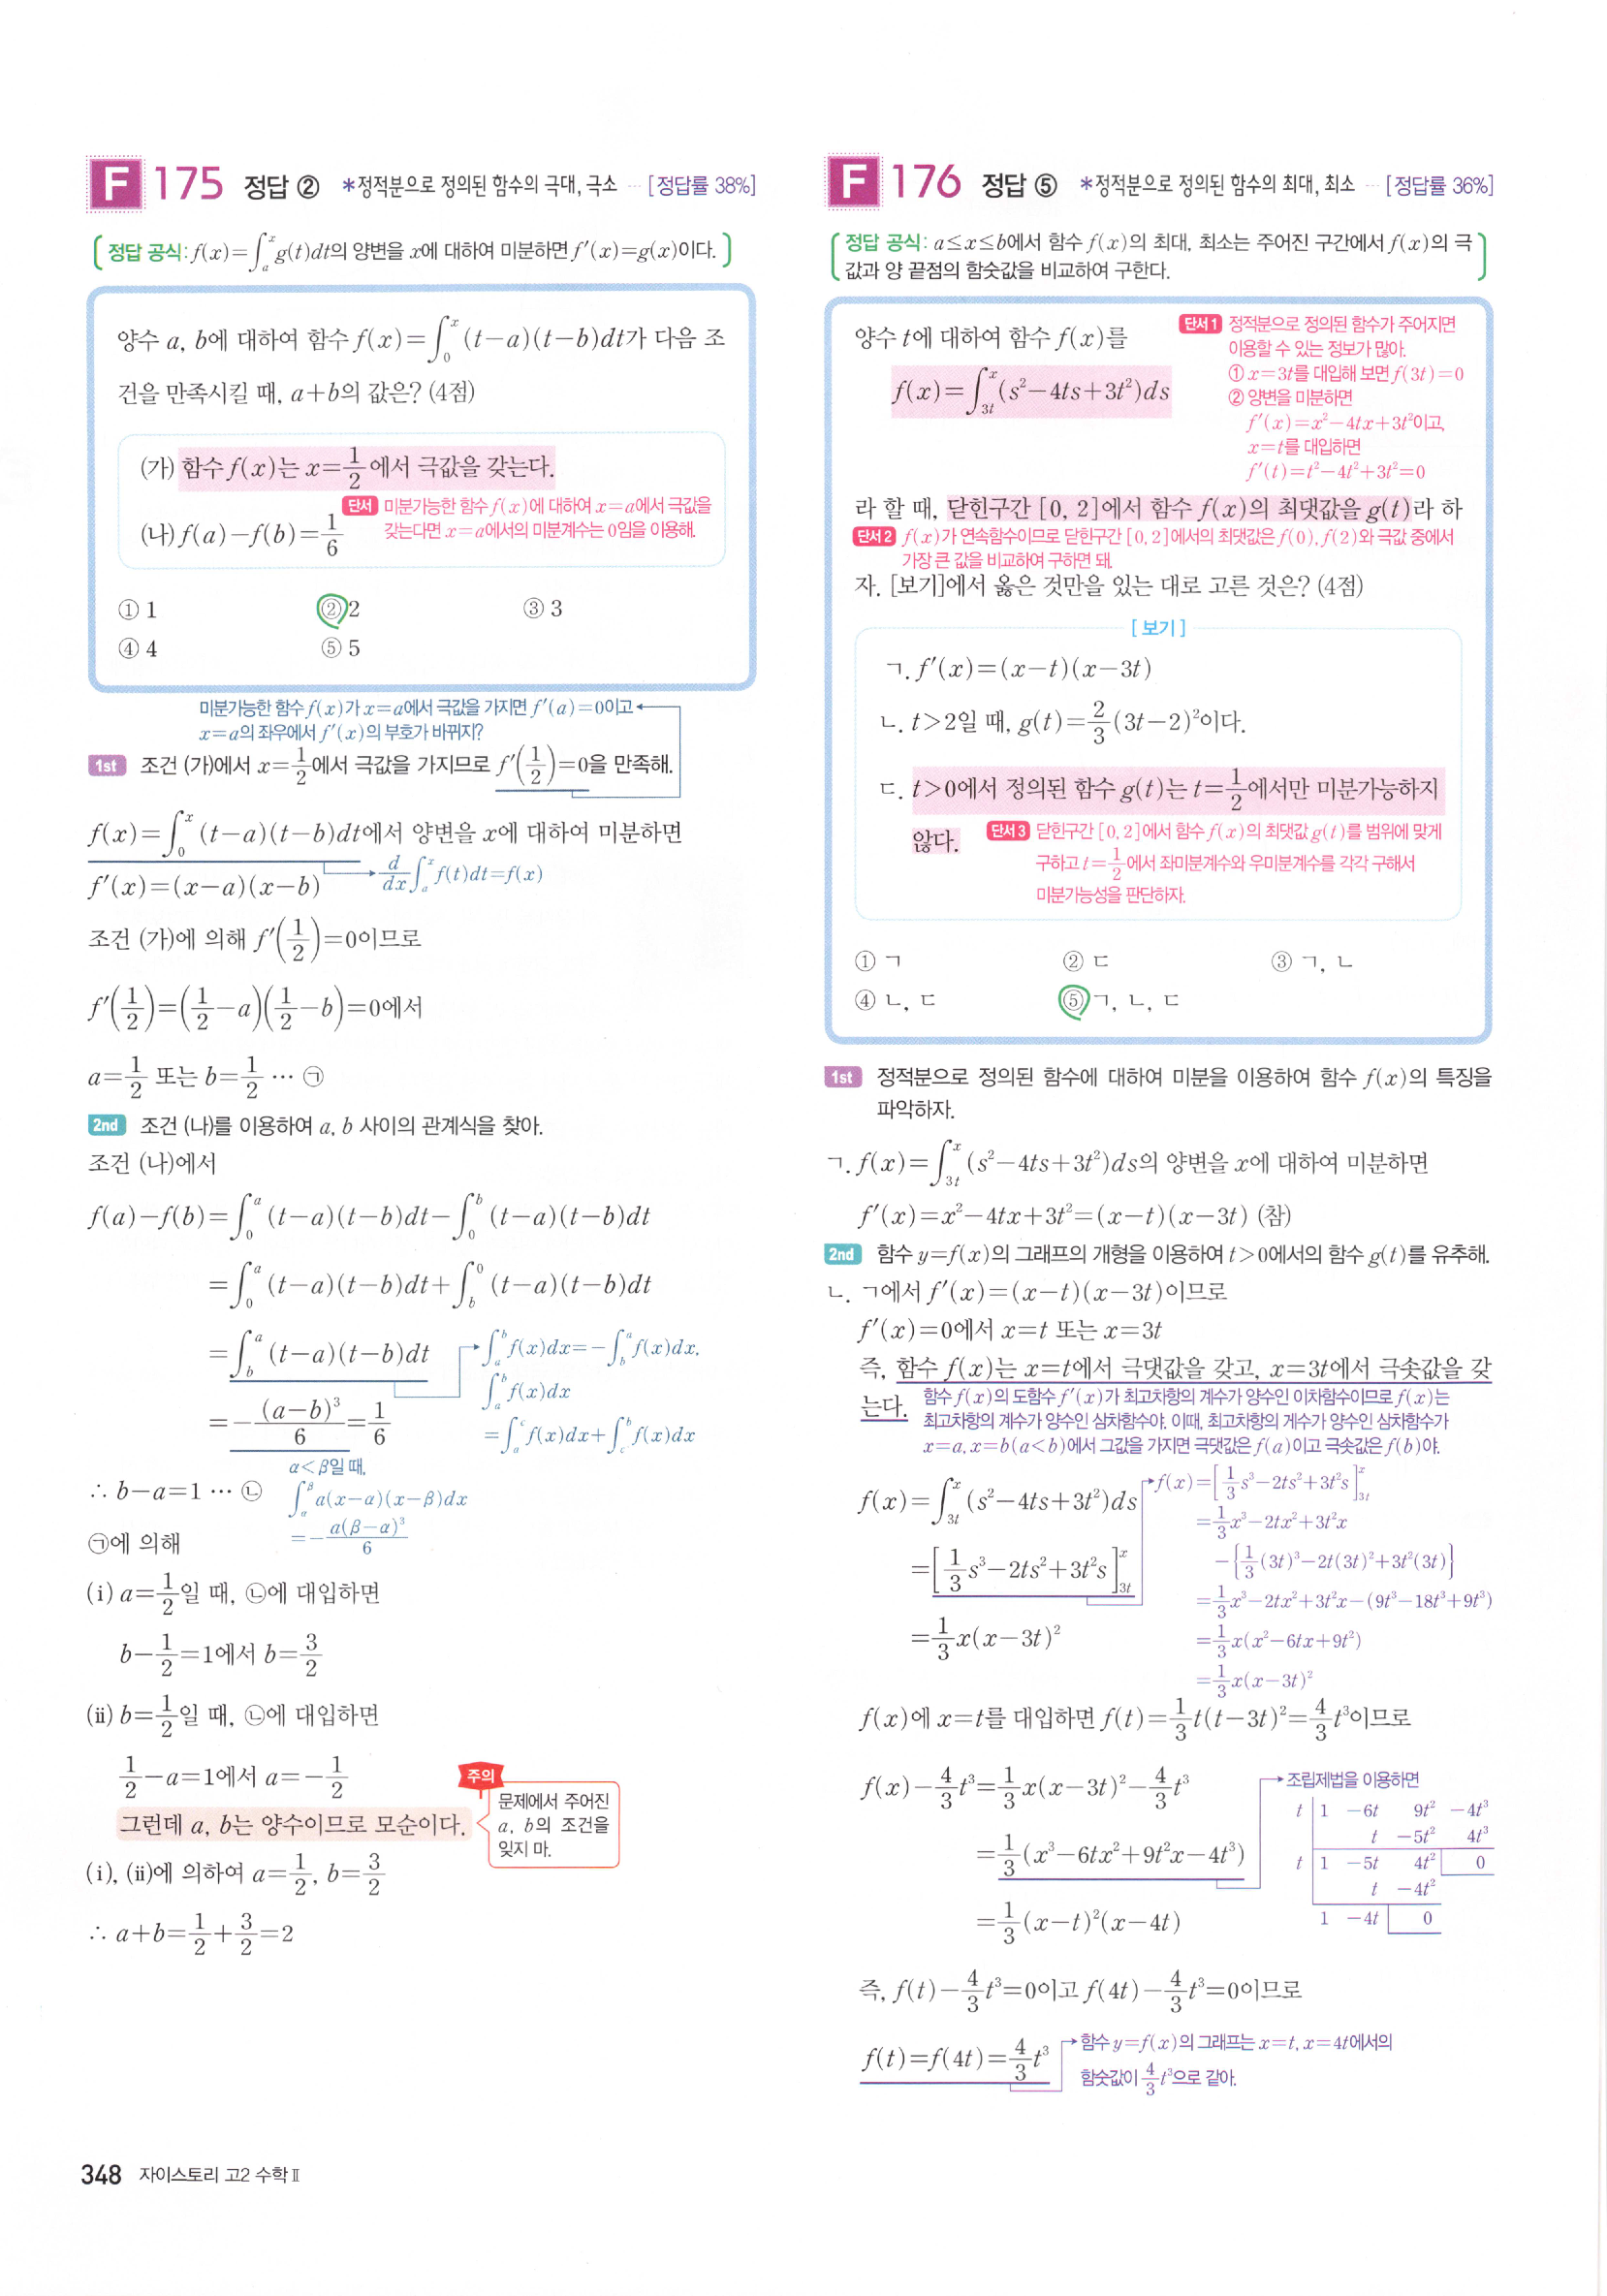 F 175 정답 ② *정적분으로 정의된 함수의 극대, 극소 ··· [정답률 38%]
정답 공식: f(x)=∫_a^x g(t)dt의 양변을 x에 대하여 미분하면 f′(x)=g(x)이다.
양수 a, b에 대하여 함수 f(x)=∫_0^x (t-a)(t-b)dt가 다음 조
건을 만족시킬 때, a+b의 값은? (4점)
(가) 함수 f(x)는 x=1/2에서 극값을 갖는다.
단서 미분가능한 함수 f(x)에 대하여 x=a에서 극값을
갖는다면 x=a에서의 미분계수는 0임을 이용해.
(나) f(a)-f(b)=1/6
① 1 ② 2 ③ 3
④ 4 ⑤ 5
미분가능한 함수 f(x)가 x=a에서 극값을 가지면 f′(a)=0이고
x=a의 좌우에서 f′(x)의 부호가 바뀌지?
1st 조건 (가)에서 x=1/2에서 극값을 가지므로 f′(1/2)=0을 만족해.
f(x)=∫_0^x (t-a)(t-b)dt에서 양변을 x에 대하여 미분하면
f′(x)=(x-a)(x-b)
d/dx ∫_a^x f(t)dt=f(x)
조건 (가)에 의해 f′(1/2)=0이므로
f′(1/2)=(1/2-a)(1/2-b)=0에서
a=1/2 또는 b=1/2 ··· ㉠
2nd 조건 (나)를 이용하여 a, b 사이의 관계식을 찾아.
조건 (나)에서
f(a)-f(b)=∫_0^a (t-a)(t-b)dt-∫_0^b (t-a)(t-b)dt
=∫_0^a (t-a)(t-b)dt+∫_b^0 (t-a)(t-b)dt
=∫_b^a (t-a)(t-b)dt
∫_a^b f(x)dx=-∫_b^a f(x)dx,
∫_a^b f(x)dx
=∫_a^c f(x)dx+∫_c^b f(x)dx
=-(a-b)³/6=1/6
α<β일 때,
∫_α^β a(x-α)(x-β)dx
=-a(β-α)³/6
∴ b-a=1 ··· ㉡
㉠에 의해
(ⅰ) a=1/2일 때, ㉡에 대입하면
b-1/2=1에서 b=3/2
(ⅱ) b=1/2일 때, ㉡에 대입하면
1/2-a=1에서 a=-1/2
그런데 a, b는 양수이므로 모순이다.
주의
문제에서 주어진
a, b의 조건을
잊지 마.
(ⅰ), (ⅱ)에 의하여 a=1/2, b=3/2
∴ a+b=1/2+3/2=2
348 자이스토리 고2 수학Ⅱ
F 176 정답 ⑤ *정적분으로 정의된 함수의 최대, 최소 ··· [정답률 36%]
정답 공식: a≤x≤b에서 함수 f(x)의 최대, 최소는 주어진 구간에서 f(x)의 극
값과 양 끝점의 함숫값을 비교하여 구한다.
양수 t에 대하여 함수 f(x)를
f(x)=∫_3t^x (s²-4ts+3t²)ds
단서1 정적분으로 정의된 함수가 주어지면
이용할 수 있는 정보가 많아.
① x=3t를 대입해 보면 f(3t)=0
② 양변을 미분하면
f′(x)=x²-4tx+3t²이고,
x=t를 대입하면
f′(t)=t²-4t²+3t²=0
라 할 때, 닫힌구간 [0, 2]에서 함수 f(x)의 최댓값을 g(t)라 하
단서2 f(x)가 연속함수이므로 닫힌구간 [0, 2]에서의 최댓값은 f(0), f(2)와 극값 중에서
가장 큰 값을 비교하여 구하면 돼.
자. [보기]에서 옳은 것만을 있는 대로 고른 것은? (4점)
[보기]
ㄱ. f′(x)=(x-t)(x-3t)
ㄴ. t>2일 때, g(t)=2/3(3t-2)²이다.
ㄷ. t>0에서 정의된 함수 g(t)는 t=1/2에서만 미분가능하지
않다.
단서3 닫힌구간 [0, 2]에서 함수 f(x)의 최댓값 g(t)를 범위에 맞게
구하고 t=1/2에서 좌미분계수와 우미분계수를 각각 구해서
미분가능성을 판단하자.
① ㄱ ② ㄷ ③ ㄱ, ㄴ
④ ㄴ, ㄷ ⑤ ㄱ, ㄴ, ㄷ
1st 정적분으로 정의된 함수에 대하여 미분을 이용하여 함수 f(x)의 특징을
파악하자.
ㄱ. f(x)=∫_3t^x (s²-4ts+3t²)ds의 양변을 x에 대하여 미분하면
f′(x)=x²-4tx+3t²=(x-t)(x-3t) (참)
2nd 함수 y=f(x)의 그래프의 개형을 이용하여 t>0에서의 함수 g(t)를 유추해.
ㄴ. ㄱ에서 f′(x)=(x-t)(x-3t)이므로
f′(x)=0에서 x=t 또는 x=3t
즉, 함수 f(x)는 x=t에서 극댓값을 갖고, x=3t에서 극솟값을 갖
는다.
함수 f(x)의 도함수 f′(x)가 최고차항의 계수가 양수인 이차함수이므로 f(x)는
최고차항의 계수가 양수인 삼차함수야. 이때, 최고차항의 계수가 양수인 삼차함수가
x=a, x=b(a<b)에서 그값을 가지면 극댓값은 f(a)이고 극솟값은 f(b)야.
f(x)=∫_3t^x (s²-4ts+3t²)ds
=[1/3 s³-2ts²+3t²s]_3t^x
=1/3 x(x-3t)²
f(x)=[1/3 s³-2ts²+3t²s]_3t^x
=1/3 x³-2tx²+3t²x
-{1/3(3t)³-2t(3t)²+3t²(3t)}
=1/3 x³-2tx²+3t²x-(9t³-18t³+9t³)
=1/3 x(x²-6tx+9t²)
=1/3 x(x-3t)²
f(x)에 x=t를 대입하면 f(t)=1/3 t(t-3t)²=4/3 t³이므로
f(x)-4/3 t³=1/3 x(x-3t)²-4/3 t³
=1/3(x³-6tx²+9t²x-4t³)
=1/3(x-t)²(x-4t)
조립제법을 이용하면
t 1 -6t 9t² -4t³
t -5t² 4t³
t 1 -5t 4t² 0
t -4t²
1 -4t 0
즉, f(t)-4/3 t³=0이고 f(4t)-4/3 t³=0이므로
f(t)=f(4t)=4/3 t³
함수 y=f(x)의 그래프는 x=t, x=4t에서의
함숫값이 4/3 t³으로 같아.